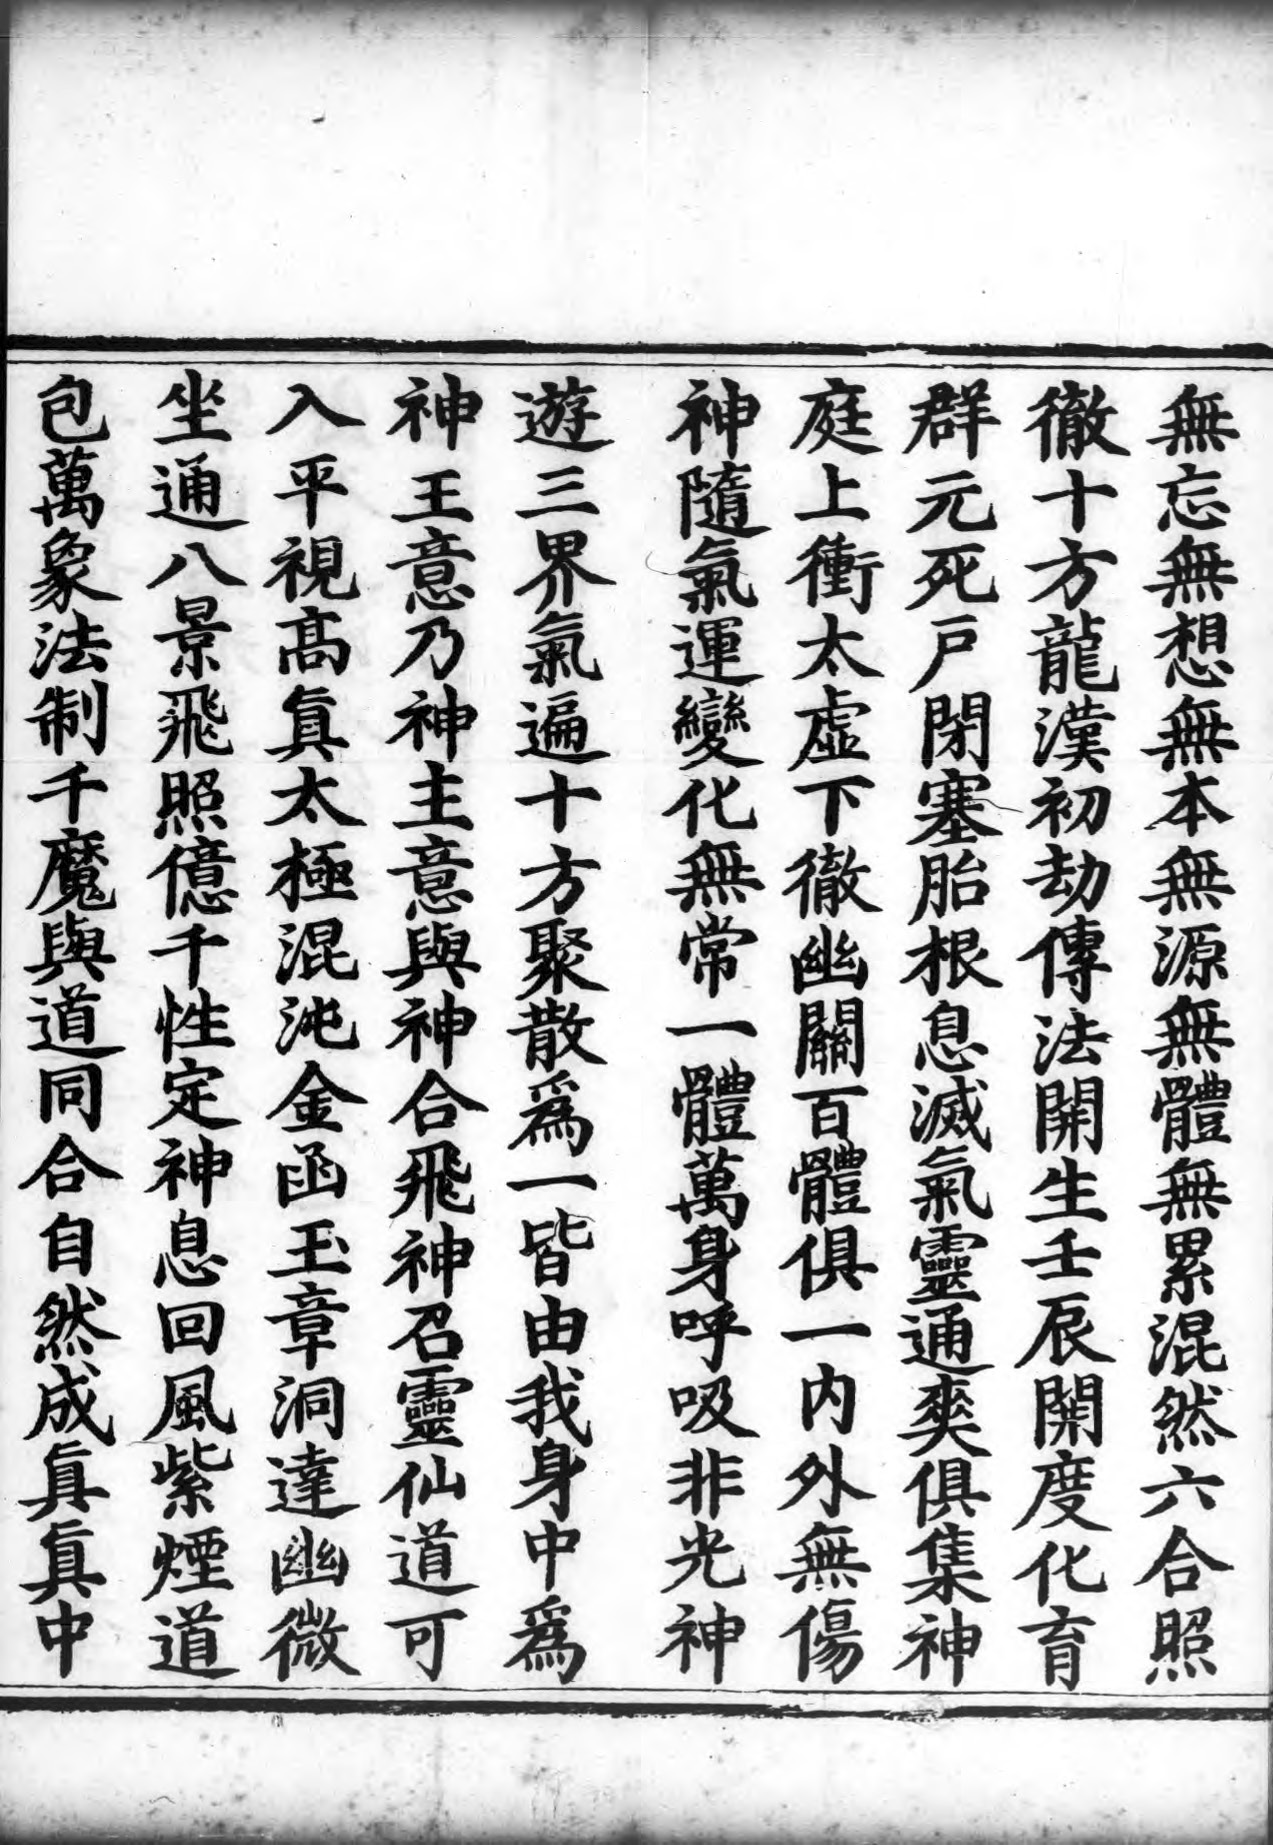 無忘無想無本無源無體無累混然六合照
徹十方龍漢初劫傳法開生壬辰開度化育
群元死戶閉塞胎根息滅氣靈通爽俱集神
庭上衝太虛下徹幽關百體俱一內外無傷
神隨氣運變化無常一體萬身呼吸非光神
遊三界氣遍十方聚散爲一皆由我身中爲
神王意乃神主意與神合飛神召靈仙道可
入平視髙真太極混沌金函玉章洞達幽微
坐通八景飛照億千性定神息回風紫煙道
包萬象法制千魔與道同合自然成真真中